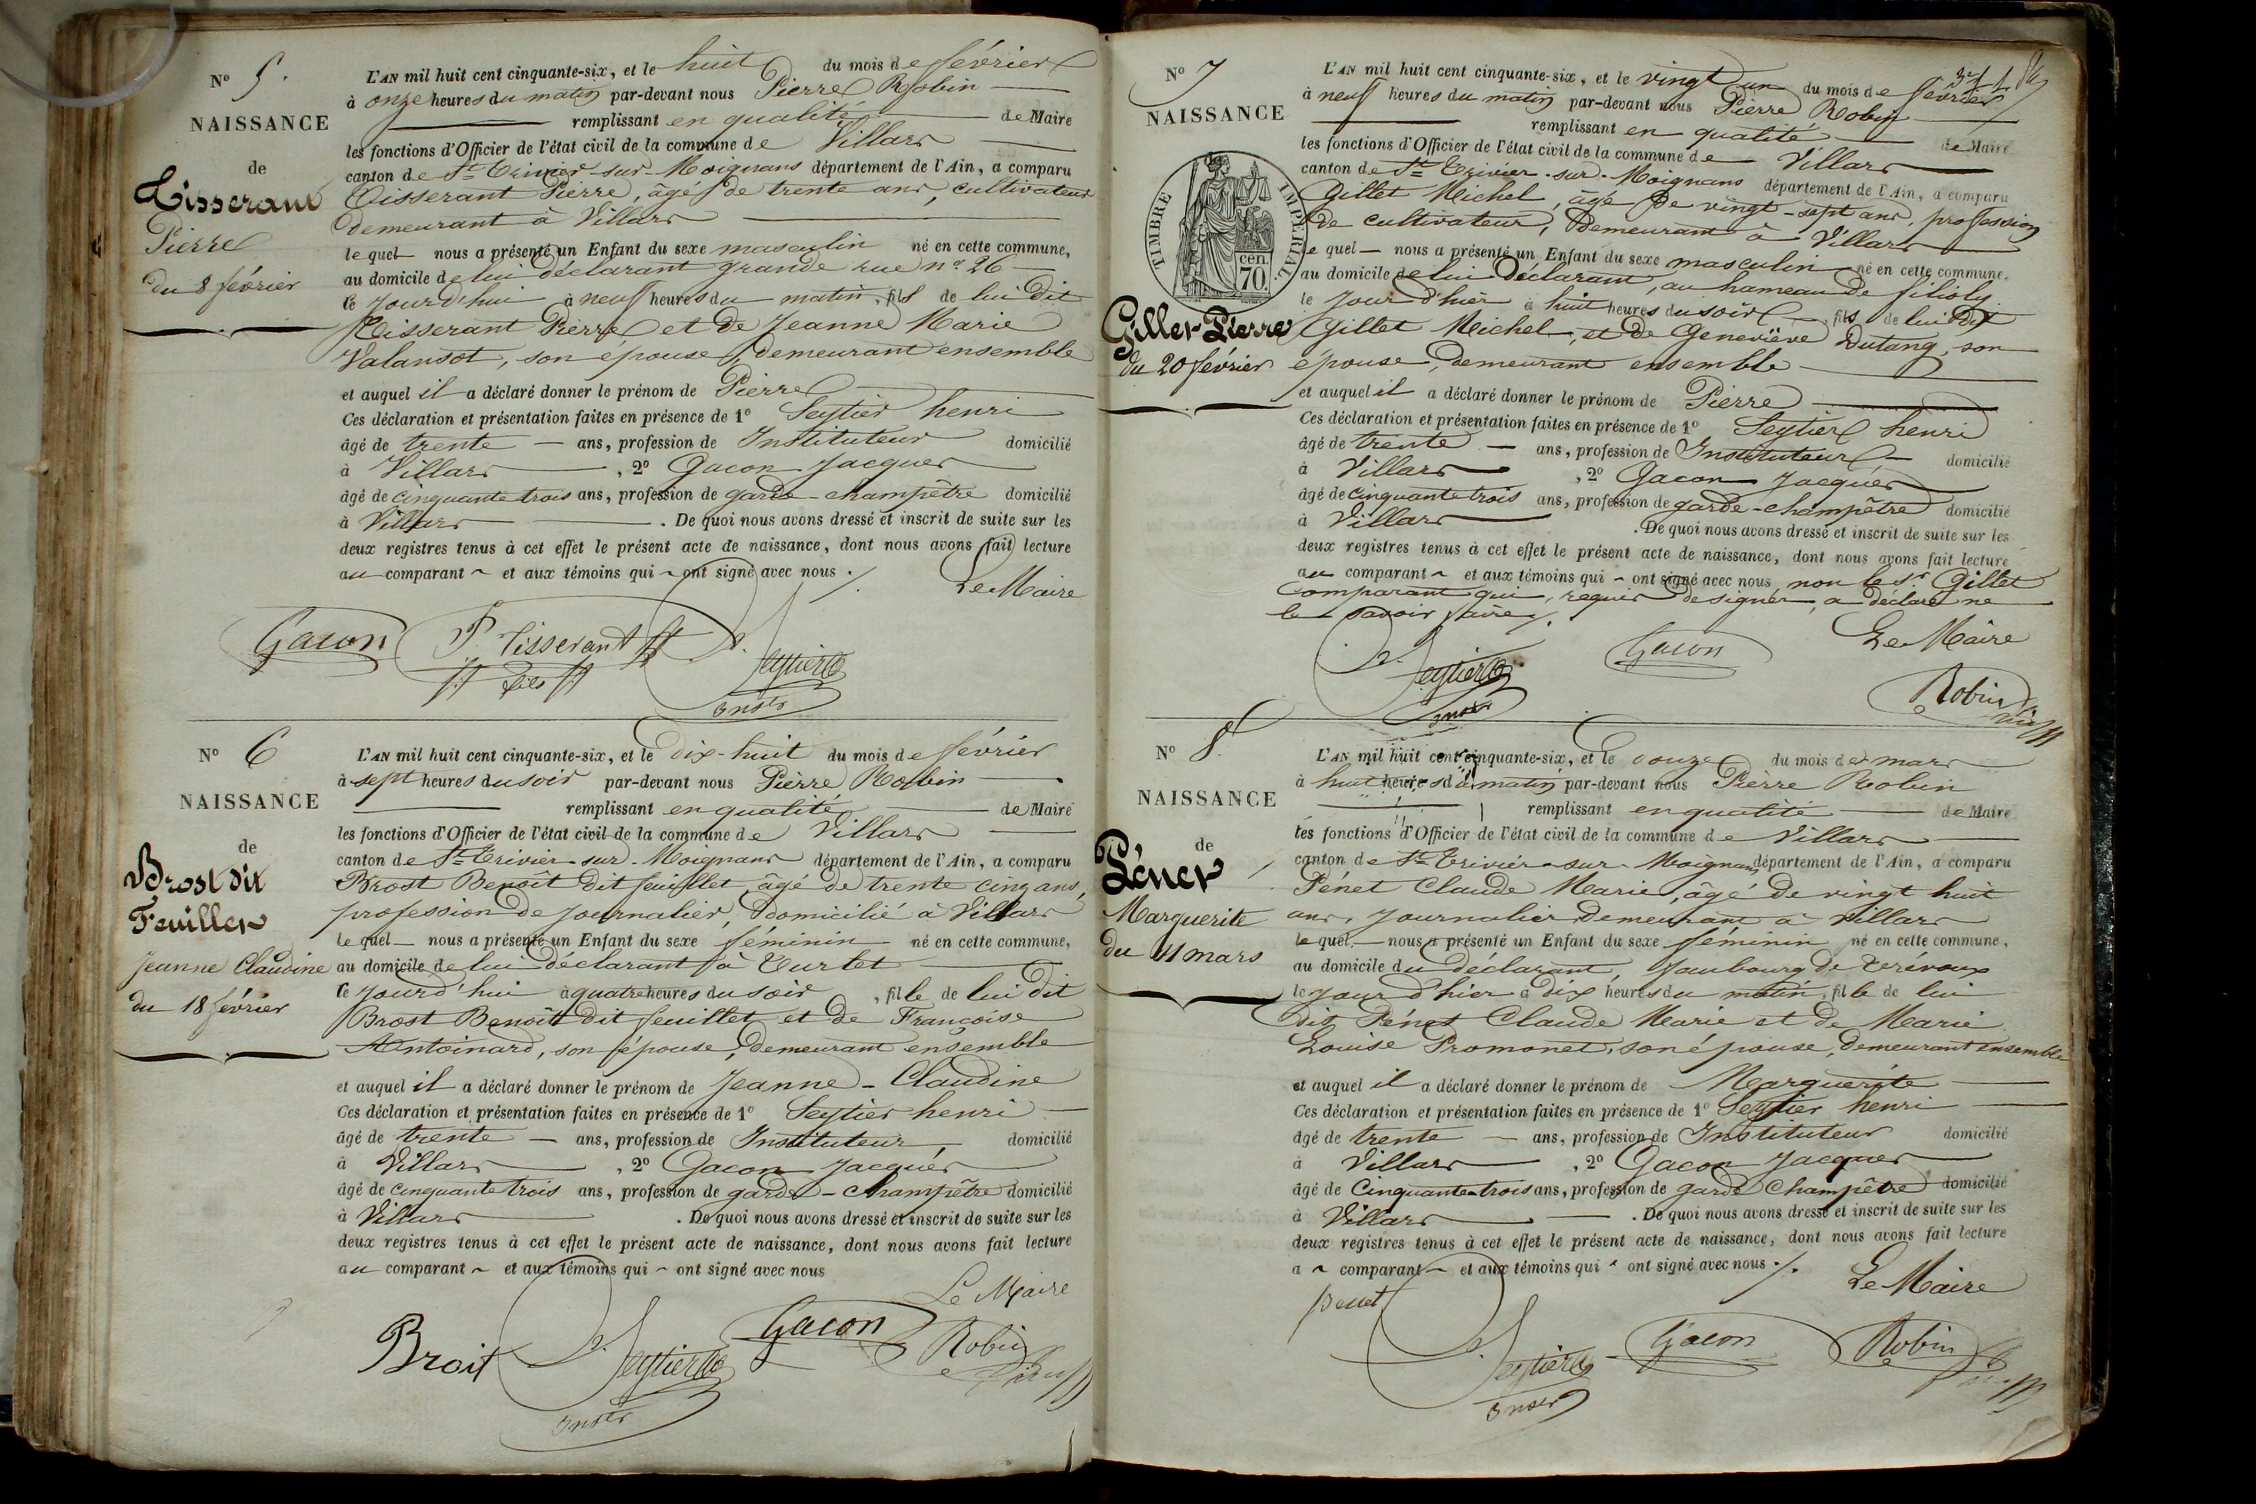 N° 5.
NAISSANCE
de
Tisserant
Pierre
du 8 février
L'AN mil huit cent cinquante-six, et le huit du mois de février
à onze heures du matin par-devant nous Pierre Robin
remplissant en qualité de Maire
les fonctions d'Officier de l'état civil de la commune de Villars
canton de St Trivier-sur-Moignans département de l'Ain, a comparu
Tisserant Pierre, âgé de trente ans, cultivateur
demeurant à Villars
lequel nous a présenté un Enfant du sexe masculin né en cette commune,
au domicile de lui déclarant grande rue n° 26
le jourd'hui à neuf heures du matin, fils de lui dit
Tisserant Pierre et de Jeanne Marie
Valansot, son épouse, demeurant ensemble
et auquel il a déclaré donner le prénom de Pierre
Ces déclaration et présentation faites en présence de 1° Seytier henri
âgé de trente ans, profession de Instituteur domicilié
à Villars, 2° Gacon Jacques
âgé de cinquante trois ans, profession de garde-champêtre domicilié
à Villars. De quoi nous avons dressé et inscrit de suite sur les
deux registres tenus à cet effet le présent acte de naissance, dont nous avons fait lecture
au comparant et aux témoins qui ont signé avec nous.
Le Maire
Gacon P. Tisserant fils Seytier
Instr
N° 6
NAISSANCE
de
Brost dit
Feuillet
Jeanne Claudine
du 18 février
L'AN mil huit cent cinquante-six, et le dix-huit du mois de février
à sept heures du soir par-devant nous Pierre Robin
remplissant en qualité de Maire
les fonctions d'Officier de l'état civil de la commune de Villars
canton de St Trivier-sur-Moignans département de l'Ain, a comparu
Brost Benoît dit feuillet, âgé de trente cinq ans,
profession de journalier, domicilié à Villars
lequel nous a présenté un Enfant du sexe féminin né en cette commune,
au domicile de lui déclarant à Turlet
le jourd'hui à quatre heures du soir, fille de lui dit
Brost Benoît dit feuillet et de Françoise
Antoinard, son épouse, demeurant ensemble
et auquel il a déclaré donner le prénom de Jeanne-Claudine
Ces déclaration et présentation faites en présence de 1° Seytier henri
âgé de trente ans, profession de Instituteur, domicilié
à Villars, 2° Gacon Jacques
âgé de cinquante trois ans, profession de garde-champêtre domicilié
à Villars. De quoi nous avons dressé et inscrit de suite sur les
deux registres tenus à cet effet le présent acte de naissance, dont nous avons fait lecture
au comparant et aux témoins qui ont signé avec nous
Le Maire
Brost Seytier Gacon Robin
Instr
N° 7
NAISSANCE
TIMBRE IMPÉRIAL
cen. 70.
Gillet Pierre
du 20 février
L'AN mil huit cent cinquante-six, et le vingt un du mois de février
à neuf heures du matin par-devant nous Pierre Robin
remplissant en qualité de Maire
les fonctions d'Officier de l'état civil de la commune de Villars
canton de St Trivier-sur-Moignans département de l'Ain, a comparu
Gillet Michel, âgé de vingt-sept ans, profession
de cultivateur, demeurant à Villars
lequel nous a présenté un Enfant du sexe masculin né en cette commune,
au domicile de lui déclarant, au hameau de filioly
le jour d'hier à huit heures du soir, fils de lui dit
Gillet Michel, et de Geneviève Dutang, son
épouse, demeurant ensemble
et auquel il a déclaré donner le prénom de Pierre
Ces déclaration et présentation faites en présence de 1° Seytier henri
âgé de trente ans, profession de Instituteur domicilié
à Villars, 2° Gacon Jacques
âgé de cinquante trois ans, profession de garde-champêtre domicilié
à Villars. De quoi nous avons dressé et inscrit de suite sur les
deux registres tenus à cet effet le présent acte de naissance, dont nous avons fait lecture
au comparant et aux témoins qui ont signé avec nous, non le Sr. Gillet
comparant qui, requis de signer, a déclaré ne
le savoir faire.
Le Maire
Seytier Gacon
Instr
Robin
N° 8.
NAISSANCE
de
Pénet
Marguerite
du 11 mars
L'AN mil huit cent cinquante-six, et le douze du mois de mars
à huit heures du matin par-devant nous Pierre Robin
remplissant en qualité de Maire
les fonctions d'Officier de l'état civil de la commune de Villars
canton de St Trivier-sur-Moignans département de l'Ain, a comparu
Pénet Claude Marie, âgé de vingt huit
ans, journalier demeurant à Villars
lequel nous a présenté un Enfant du sexe féminin né en cette commune,
au domicile du déclarant, faubourg de trévoux
le jour d'hier à dix heures du matin, fille de lui
dit Pénet Claude Marie et de Marie
Louise Promonet, son épouse, demeurant ensemble
et auquel il a déclaré donner le prénom de Marguerite
Ces déclaration et présentation faites en présence de 1° Seytier henri
âgé de trente ans, profession de Instituteur domicilié
à Villars, 2° Gacon Jacques
âgé de Cinquante-trois ans, profession de garde Champêtre domicilié
à Villars. De quoi nous avons dressé et inscrit de suite sur les
deux registres tenus à cet effet le présent acte de naissance, dont nous avons fait lecture
a comparant et aux témoins qui ont signé avec nous.
Le Maire
Penet Seytier Gacon Robin
Instr